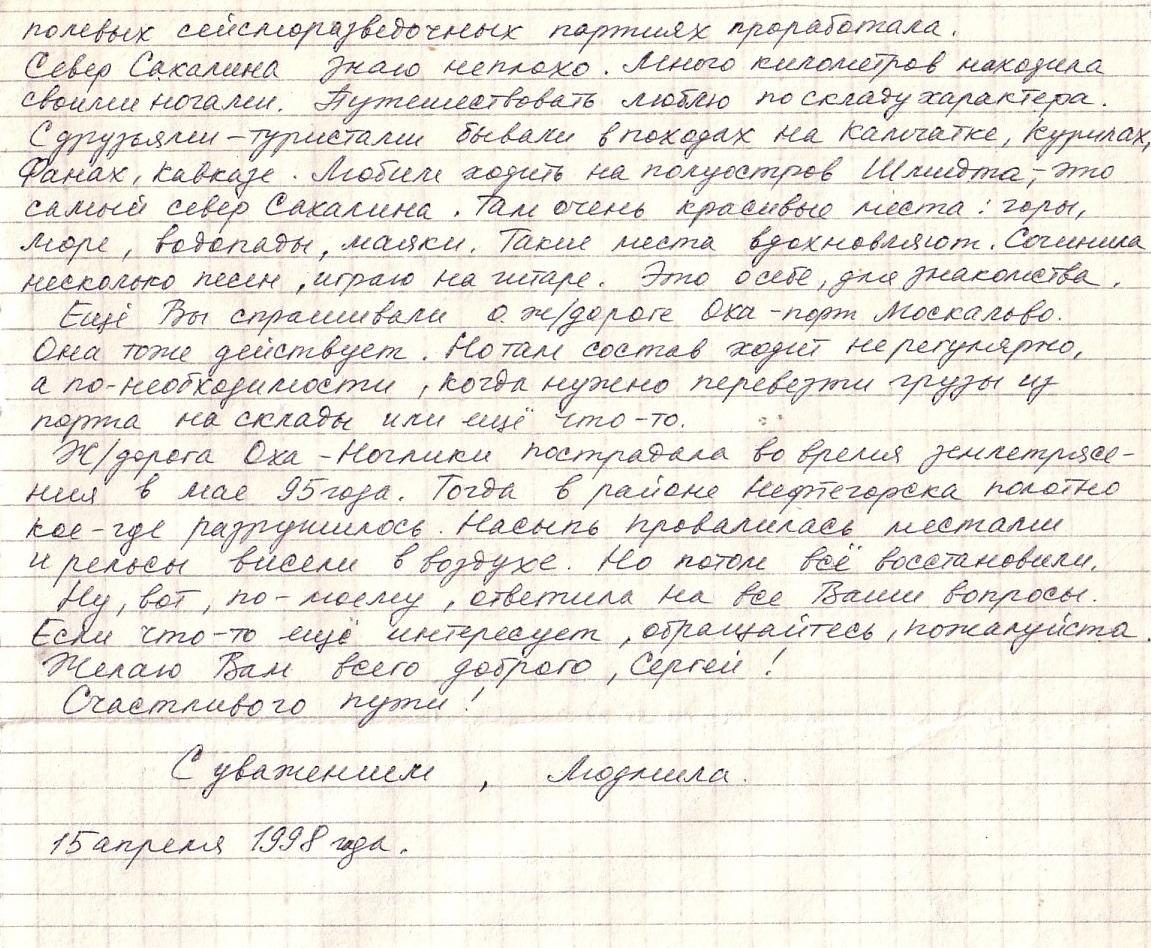 полевых сейсморазведочных партиях проработала.
Север Сахалина знаю неплохо. Много километров находила
своими ногами. Путешествовать люблю по складу характера.
С друзьями-туристами бывали в походах на Камчатке, Курилах,
Фанах, Кавказе. Любим ходить на полуостров Шмидта, - это
самый север Сахалина. Там очень красивые места: горы,
море, водопады, маяки. Такие места вдохновляют. Сочинила
несколько песен, играю на гитаре. Это о себе, для знакомства.
Ещё Вы спрашивали о ж/дороге Оха-порт Москальво.
Она тоже действует. Но там состав ходит нерегулярно,
а по-необходимости, когда нужно перевезти грузы из
порта на склады или ещё что-то.
Ж/дорога Оха-Ноглики пострадала во время землетрясе-
ния в мае 95 года. Тогда в районе Нефтегорска полотно
кое-где разрушилось. Насыпь провалилась местами
и рельсы висели в воздухе. Но потом всё восстановили.
Ну, вот, по-моему, ответила на все Ваши вопросы.
Если что-то ещё интересует, обращайтесь, пожалуйста.
Желаю Вам всего доброго, Сергей!
Счастливого пути!
С уважением, Людмила.
15 апреля 1998 года.